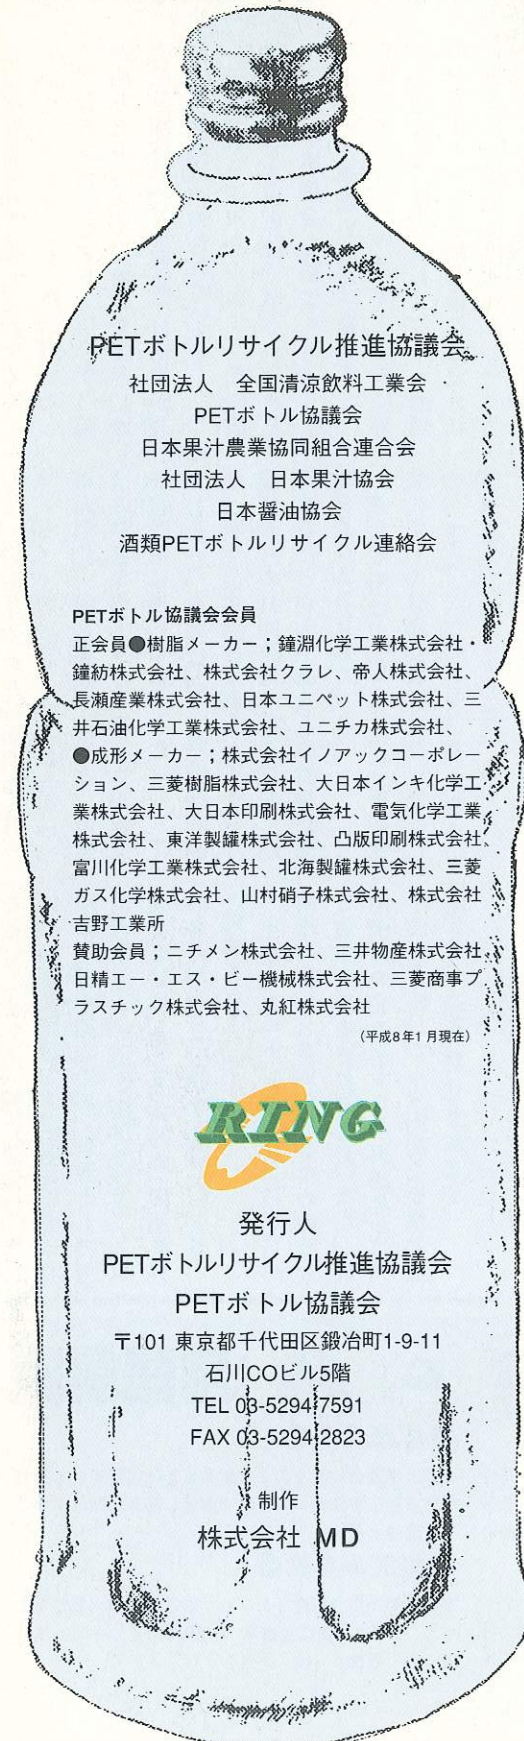 PETボトルリサイクル推進協議会
社団法人　全国清涼飲料工業会
PETボトル協議会
日本果汁農業協同組合連合会
社団法人　日本果汁協会
日本醤油協会
酒類PETボトルリサイクル連絡会
PETボトル協議会会員
正会員●樹脂メーカー；鐘淵化学工業株式会社・
鐘紡株式会社、株式会社クラレ、帝人株式会社、
長瀬産業株式会社、日本ユニペット株式会社、三
井石油化学工業株式会社、ユニチカ株式会社、
●成形メーカー；株式会社イノアックコーポレー
ション、三菱樹脂株式会社、大日本インキ化学工
業株式会社、大日本印刷株式会社、電気化学工業
株式会社、東洋製罐株式会社、凸版印刷株式会社、
富川化学工業株式会社、北海製罐株式会社、三菱
ガス化学株式会社、山村硝子株式会社、株式会社
吉野工業所
賛助会員；ニチメン株式会社、三井物産株式会社、
日精エー・エス・ビー機械株式会社、三菱商事プ
ラスチック株式会社、丸紅株式会社
（平成8年1月現在）
RING
発行人
PETボトルリサイクル推進協議会
PETボトル協議会
〒101 東京都千代田区鍛冶町1-9-11
石川COビル5階
TEL 03-5294-7591
FAX 03-5294-2823
制作
株式会社 MD